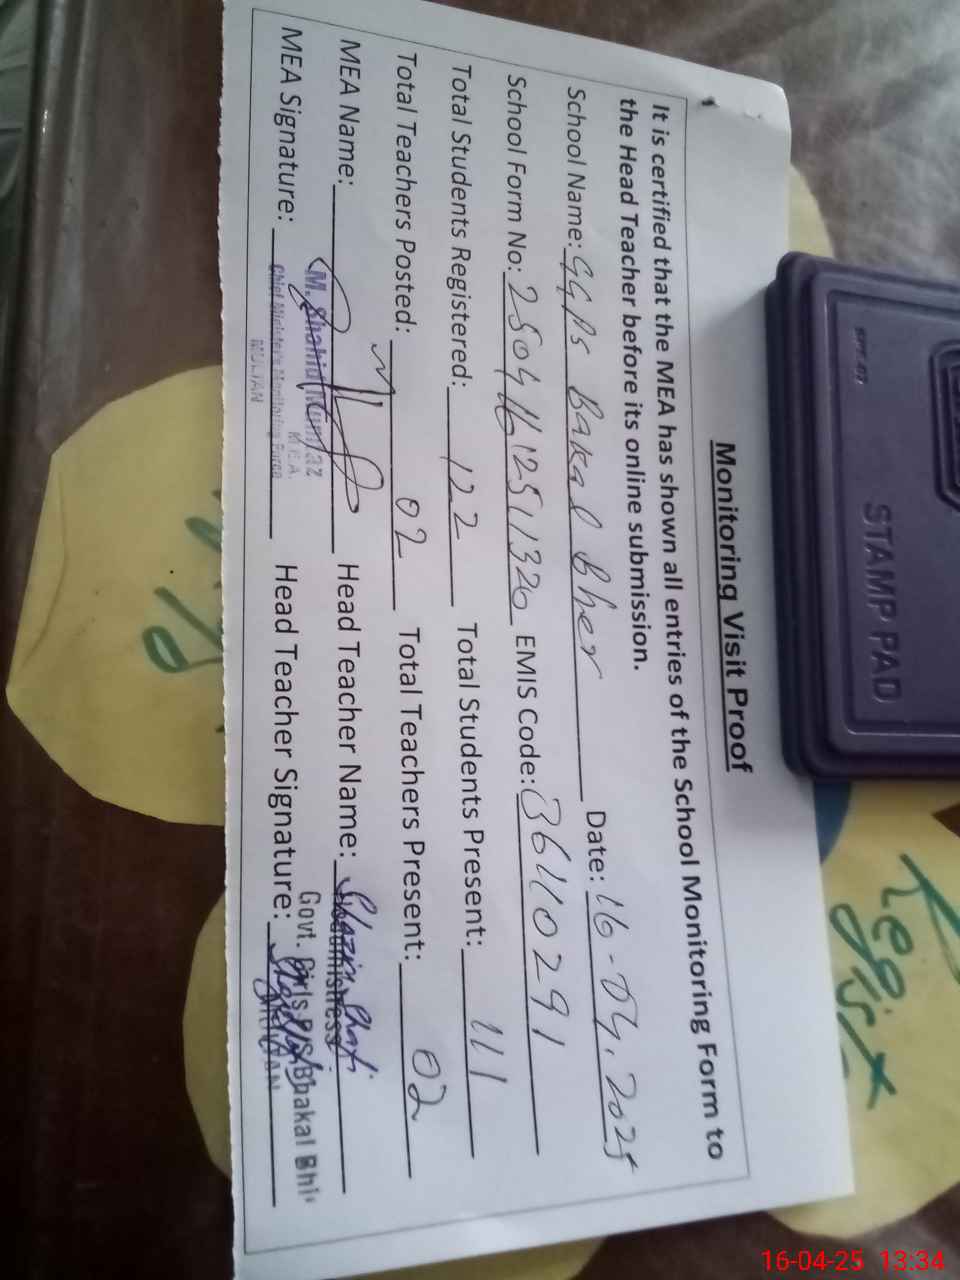 Monitoring Visit Proof
It is certified that the MEA has shown all entries of the School Monitoring Form to
the Head Teacher before its online submission.
School Name: GGPS Bakal Bher Date: 16-04-2025
School Form No: EMIS Code: 36110291
Total Students Registered: 122 Total Students Present: 111
Total Teachers Posted: 02 Total Teachers Present: 02
MEA Name: Head Teacher Name:
M. Shahid Mumtaz
M.E.A.
MEA Signature: Head Teacher Signature:
Chief Minister's Monitoring Force
MULTAN
Headmistress
Govt. Girls P/S Bhakal Bhir
MULTAN
STAMP PAD
Regi
16-04-25 13:34